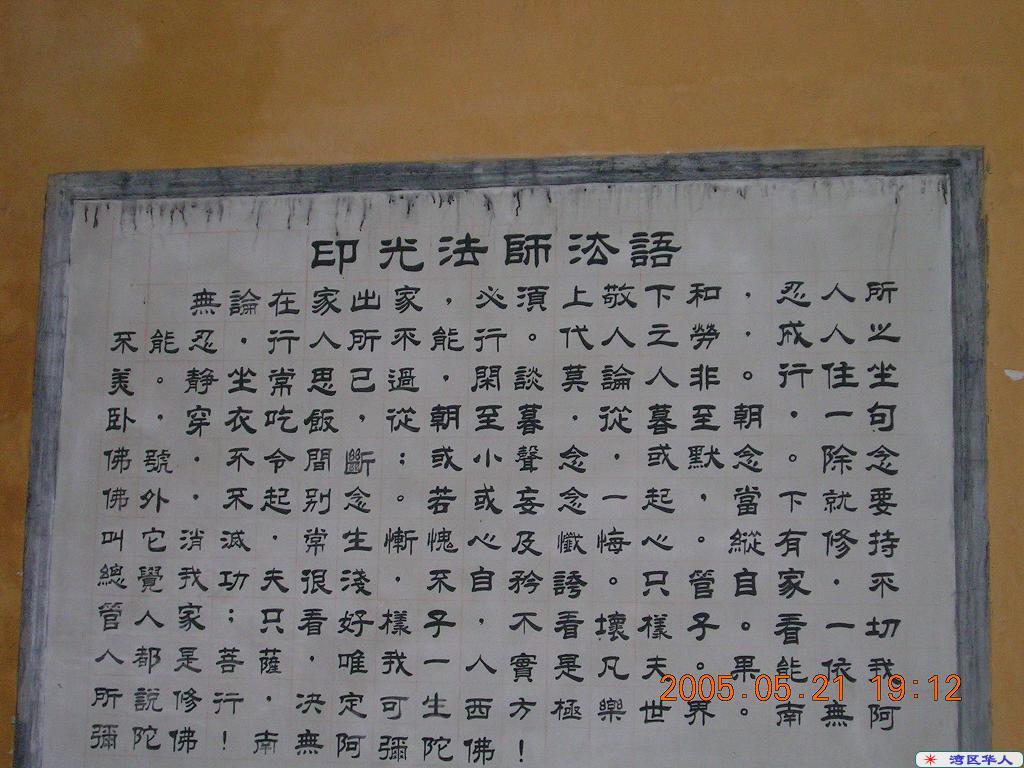 印光法師法語
無論在家出家，必須上敬下和，忍人所
不能忍，行人所不能行。代人之勞，成人之
美。靜坐常思己過，閑談莫論人非。行住坐
卧，穿衣吃飯，從朝至暮，從暮至朝，一句
佛號，不令間斷；或小聲念，或默念。除念
佛外，不起别念。若或妄念一起，當下就要
叫它消滅，常生慚愧心及懺悔心。縱有修持
總覺我功夫很淺，不自矜誇。只管自家，不
管人家；只看好樣子，不看壞樣子。看一切
人都是菩薩，唯我一人實是凡夫。果能依我
所說修行，決定可生西方極樂世界。南無阿
彌陀佛！南無阿彌陀佛！
2005.05.21 19:12
湾区华人